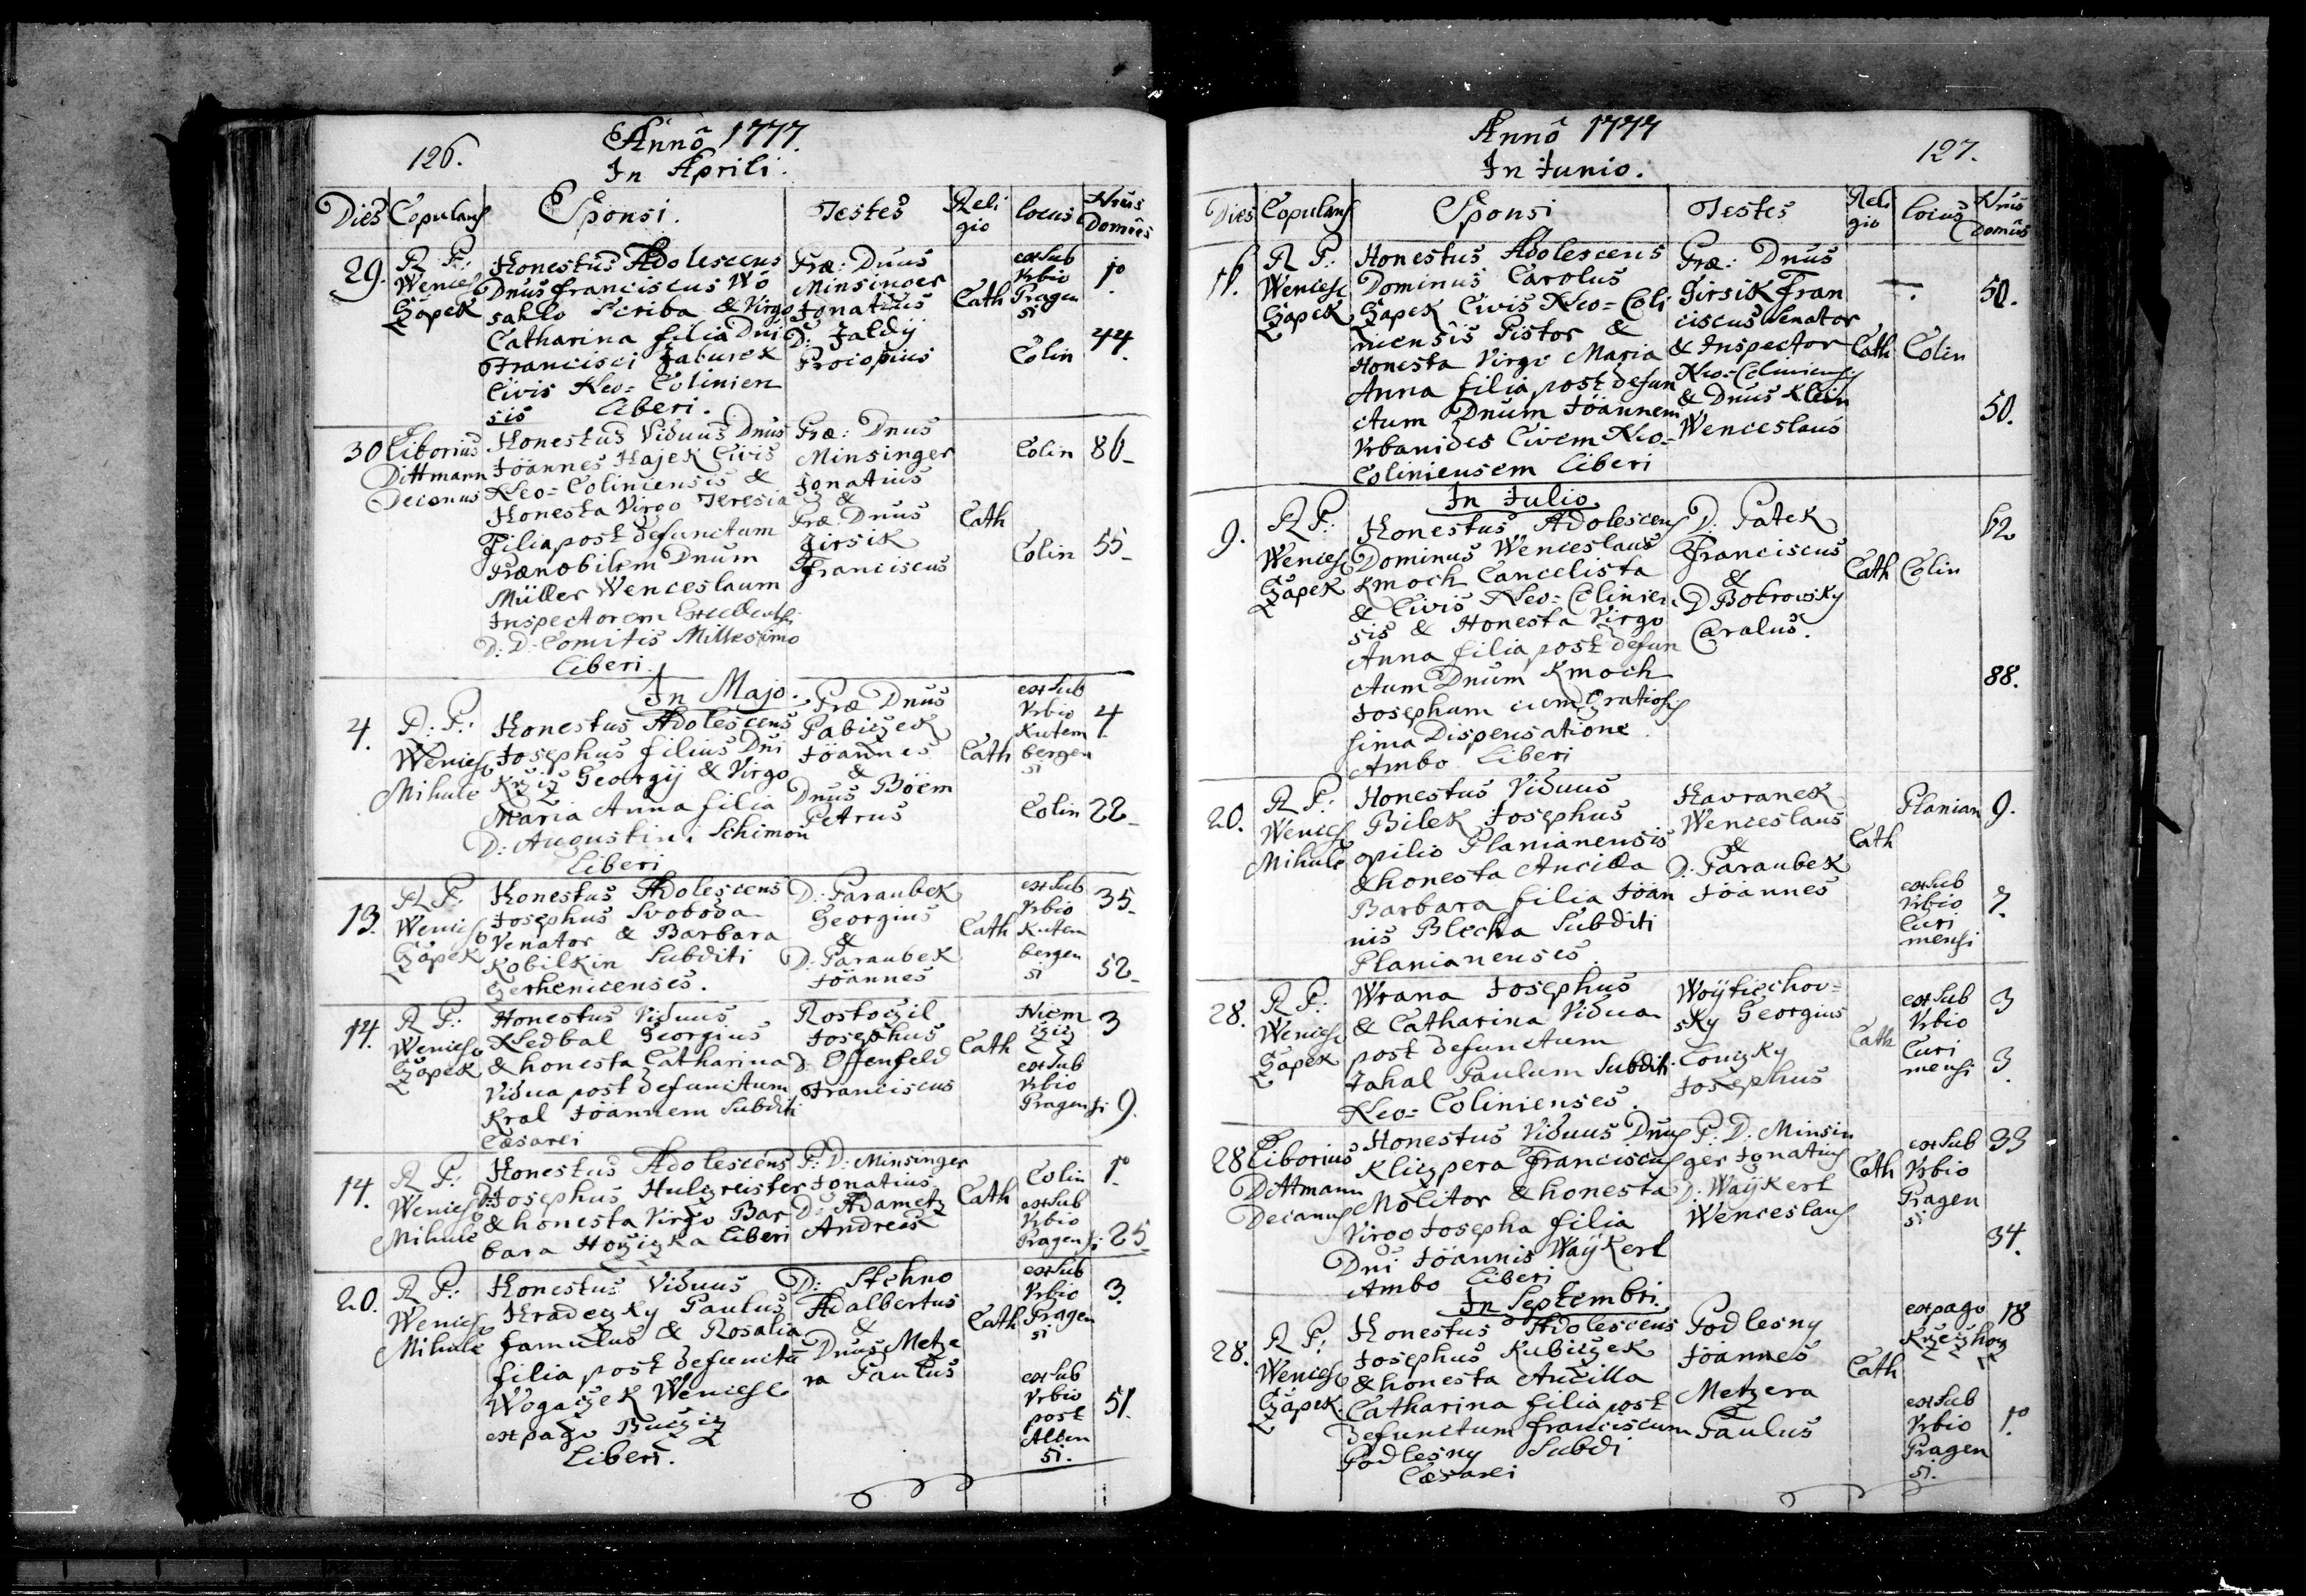 126.
Annô 1777.
In Aprili.
Dies Copulans Sponsi. Testes Reli gio locus Nrûs Domûs
29.
R P:
Wencesl
Czapek
Honestus Adolescens
Dnus Franciscus Wo
sahlo Scriba & Virgo
Catharina filia Dni
Francisci Jaburek
Civis Neo=Colinien
sis Liberi.
Præ: Dnus
Minsinger
Ignatius
D: Jaldy
Procopius
Cath
ex Sub
Vrbio
Pragen
si
Colin
1º
44.
30
Liborius
Dittmann
Decanus
Honestus Viduus Dnus
Jöannes Hajek Civis
Neo=Coliniensis &
Honesta Virgo Teresia
Filia post defunctum
Prænobilem Dnum
Müller Wenceslaum
Inspectorem
D: D: Comitis Millesimo
Liberi.
Præ: Dnus
Minsinger
Ignatius
&
Præ: Dnus
Jirsik
Franciscus
Cath
Colin
Colin
86
55
In Majo.
4.
R: P:
Wencesl
Mihule
Honestus Adolescens
Josephus filius Dni
Krziz Georgij & Virgo
Maria Anna filia
D: Augustini Schimon
Liberi
Præ Dnus
Pabiczek
Jöannes
&
Dnus Böem
Petrus
Cath
ex Sub
Vrbio
Kutem
bergen
si
Colin
4.
22
13.
R P:
Wencesl
Czapek
Honestus Adolescens
Josephus Svoboda
Venator & Barbara
Kobilkin Subditi
Czerhenicenses.
D: Paraubek
Georgius
&
D: Paraubek
Jöannes
Cath
ex Sub
Vrbio
Kutem
bergen
si
35
52
14.
R P:
Wencesl
Czapek
Honestus Viduus
Nedbal Georgius
& honesta Catharina
Vidua post defunctum
Kral Jöannem Subditi
Cæsarei
Rostoczil
Josephus
D: Offenfeld
Franciscus
Cath
Niem
cziz
ex Sub
Vrbio
Pragensi
3
9.
14.
R P:
Wencesl
Mihule
Honestus Adolescens
D: Josephus Hulczreister
& honesta Virgo Bar
bara Liberi
P: D: Minsinger
Ignatius
D: Adametz
Andreas
Cath
Colin
ex Sub
Vrbio
Pragensi
1º
25
20.
R P:
Wencesl
Mihule
Honestus Viduus
Hradeczky Paulus
famulus & Rosalia
filia post defunctu
Wogaczek Wencesl
ex pago Buczicz
Liberi.
D: Stehno
Adalbertus
&
Dnus Metze
ra Paulus
Cath
ex Sub
Vrbio
Pragen
si
ex Sub
Vrbio
post
Alben
si.
3.
51.
Annô 1777
127.
In Junio.
Dies Copulans Sponsi Testes Reli gio Locus Nrûs Domûs
R P:
Wencesl
Czapek
Honestus Adolescens
Dominus Carolus
Czapek Civis Neo=Coli
niensis Pistor &
Honesta Virgo Maria
Anna filia post defun
ctum Dnum Jöannem
Vrbanides Civem Neo=
Coliniensem Liberi
Præ: Dnus
Girsik Fran
ciscus Senator
& Inspector
Neo=Coliniensis
& Dnus Klein
Wenceslaus
Cath
Colin
50.
50.
In Julio
9.
R P:
Wencesl
Czapek
Honestus Adolescens
Dominus Wenceslaus
Kmoch Cancelista
& Civis Neo=Colinien
sis & Honesta Virgo
Anna filia post defun
ctum Dnum Kmoch
Josephum cum Gratiosis
sima Dispensatione
Ambo Liberi
D: Patek
Franciscus
&
D Bobrowsky
Caralus.
Cath
Colin
62
88.
20.
R P:
Wencesl
Mihule
Honestus Viduus
Bilek Josephus
opilio Planianensis
& honesta Ancilla
Barbara filia Jöan
nis Blecha Subditi
Planianenses.
Havranek
Wenceslaus
&
D: Paraubek
Jöannes
Cath
Planian
ex Sub
Vrbio
Curi
mensi
9.
7.
28.
R P:
Wencesl
Czapek
Wrana Josephus
& Catharina Vidua
post defunctum
Jahal Paulum Subditi
Neo=Colinienses.
Woÿtiechov=
sky Georgius
Louczky
Josephus
Cath
ex Sub
Vrbio
Curi
mensi
3
3.
28
Liborius
Dittmann
Decanus
Honestus Viduus Dnus
Kliczpera Franciscus
Molitor & honesta
Virgo Josepha filia
Dni Jöannis Waÿkerl
Ambo Liberi
P: D: Minsin
ger Ignatius
D: Waÿkerl
Wenceslaus
Cath
ex Sub
Vrbio
Pragen
si
33
34.
In Septembri.
28.
R P:
Wencesl
Czapek
Honestus Adolescens
Josephus Kubiczek
& honesta Ancilla
Catharina filia post
defunctum Franciscum
Podlesny Subdi
Cæsarei
Podlesny
Jöannes
Metzera
Paulus
Cath
ex pago
Krzeczhorz
ex Sub
Vrbio
Pragen
si.
18
1º